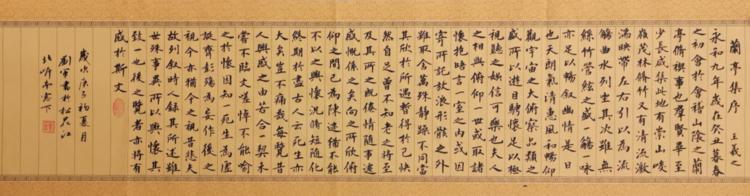 蘭亭集序 王羲之
永和九年歲在癸丑暮春
之初會於會稽山陰之蘭
亭脩禊事也羣賢畢至
少長咸集此地有崇山峻
嶺茂林脩竹又有清流激
湍映帶左右引以為流
觴曲水列坐其次雖無
絲竹管絃之盛一觴一詠
亦足以暢敘幽情是日
也天朗氣清惠風和暢仰
觀宇宙之大俯察品類之
盛所以遊目騁懷足以極
視聽之娛信可樂也夫人
之相與俯仰一世或取諸
懷抱晤言一室之內或因
寄所託放浪形骸之外
雖取舍萬殊靜躁不同當
其欣於所遇暫得於己快
然自足曾不知老之將至
及其所之既倦情隨事遷
感慨係之矣向之所欣俯
仰之間已為陳迹猶不能
不以之興懷況脩短隨化
終期於盡古人云死生亦
大矣豈不痛哉每覽昔
人興感之由若合一契未
嘗不臨文嗟悼不能喻
之於懷固知一死生為虛
誕齊彭殤為妄作後之
視今亦猶今之視昔悲夫
故列敘時人錄其所述雖
世殊事異所以興懷其
致一也後之覽者亦將有
感於斯文
歲次庚子初夏月
劉軍書於松花江
北岸南窗下